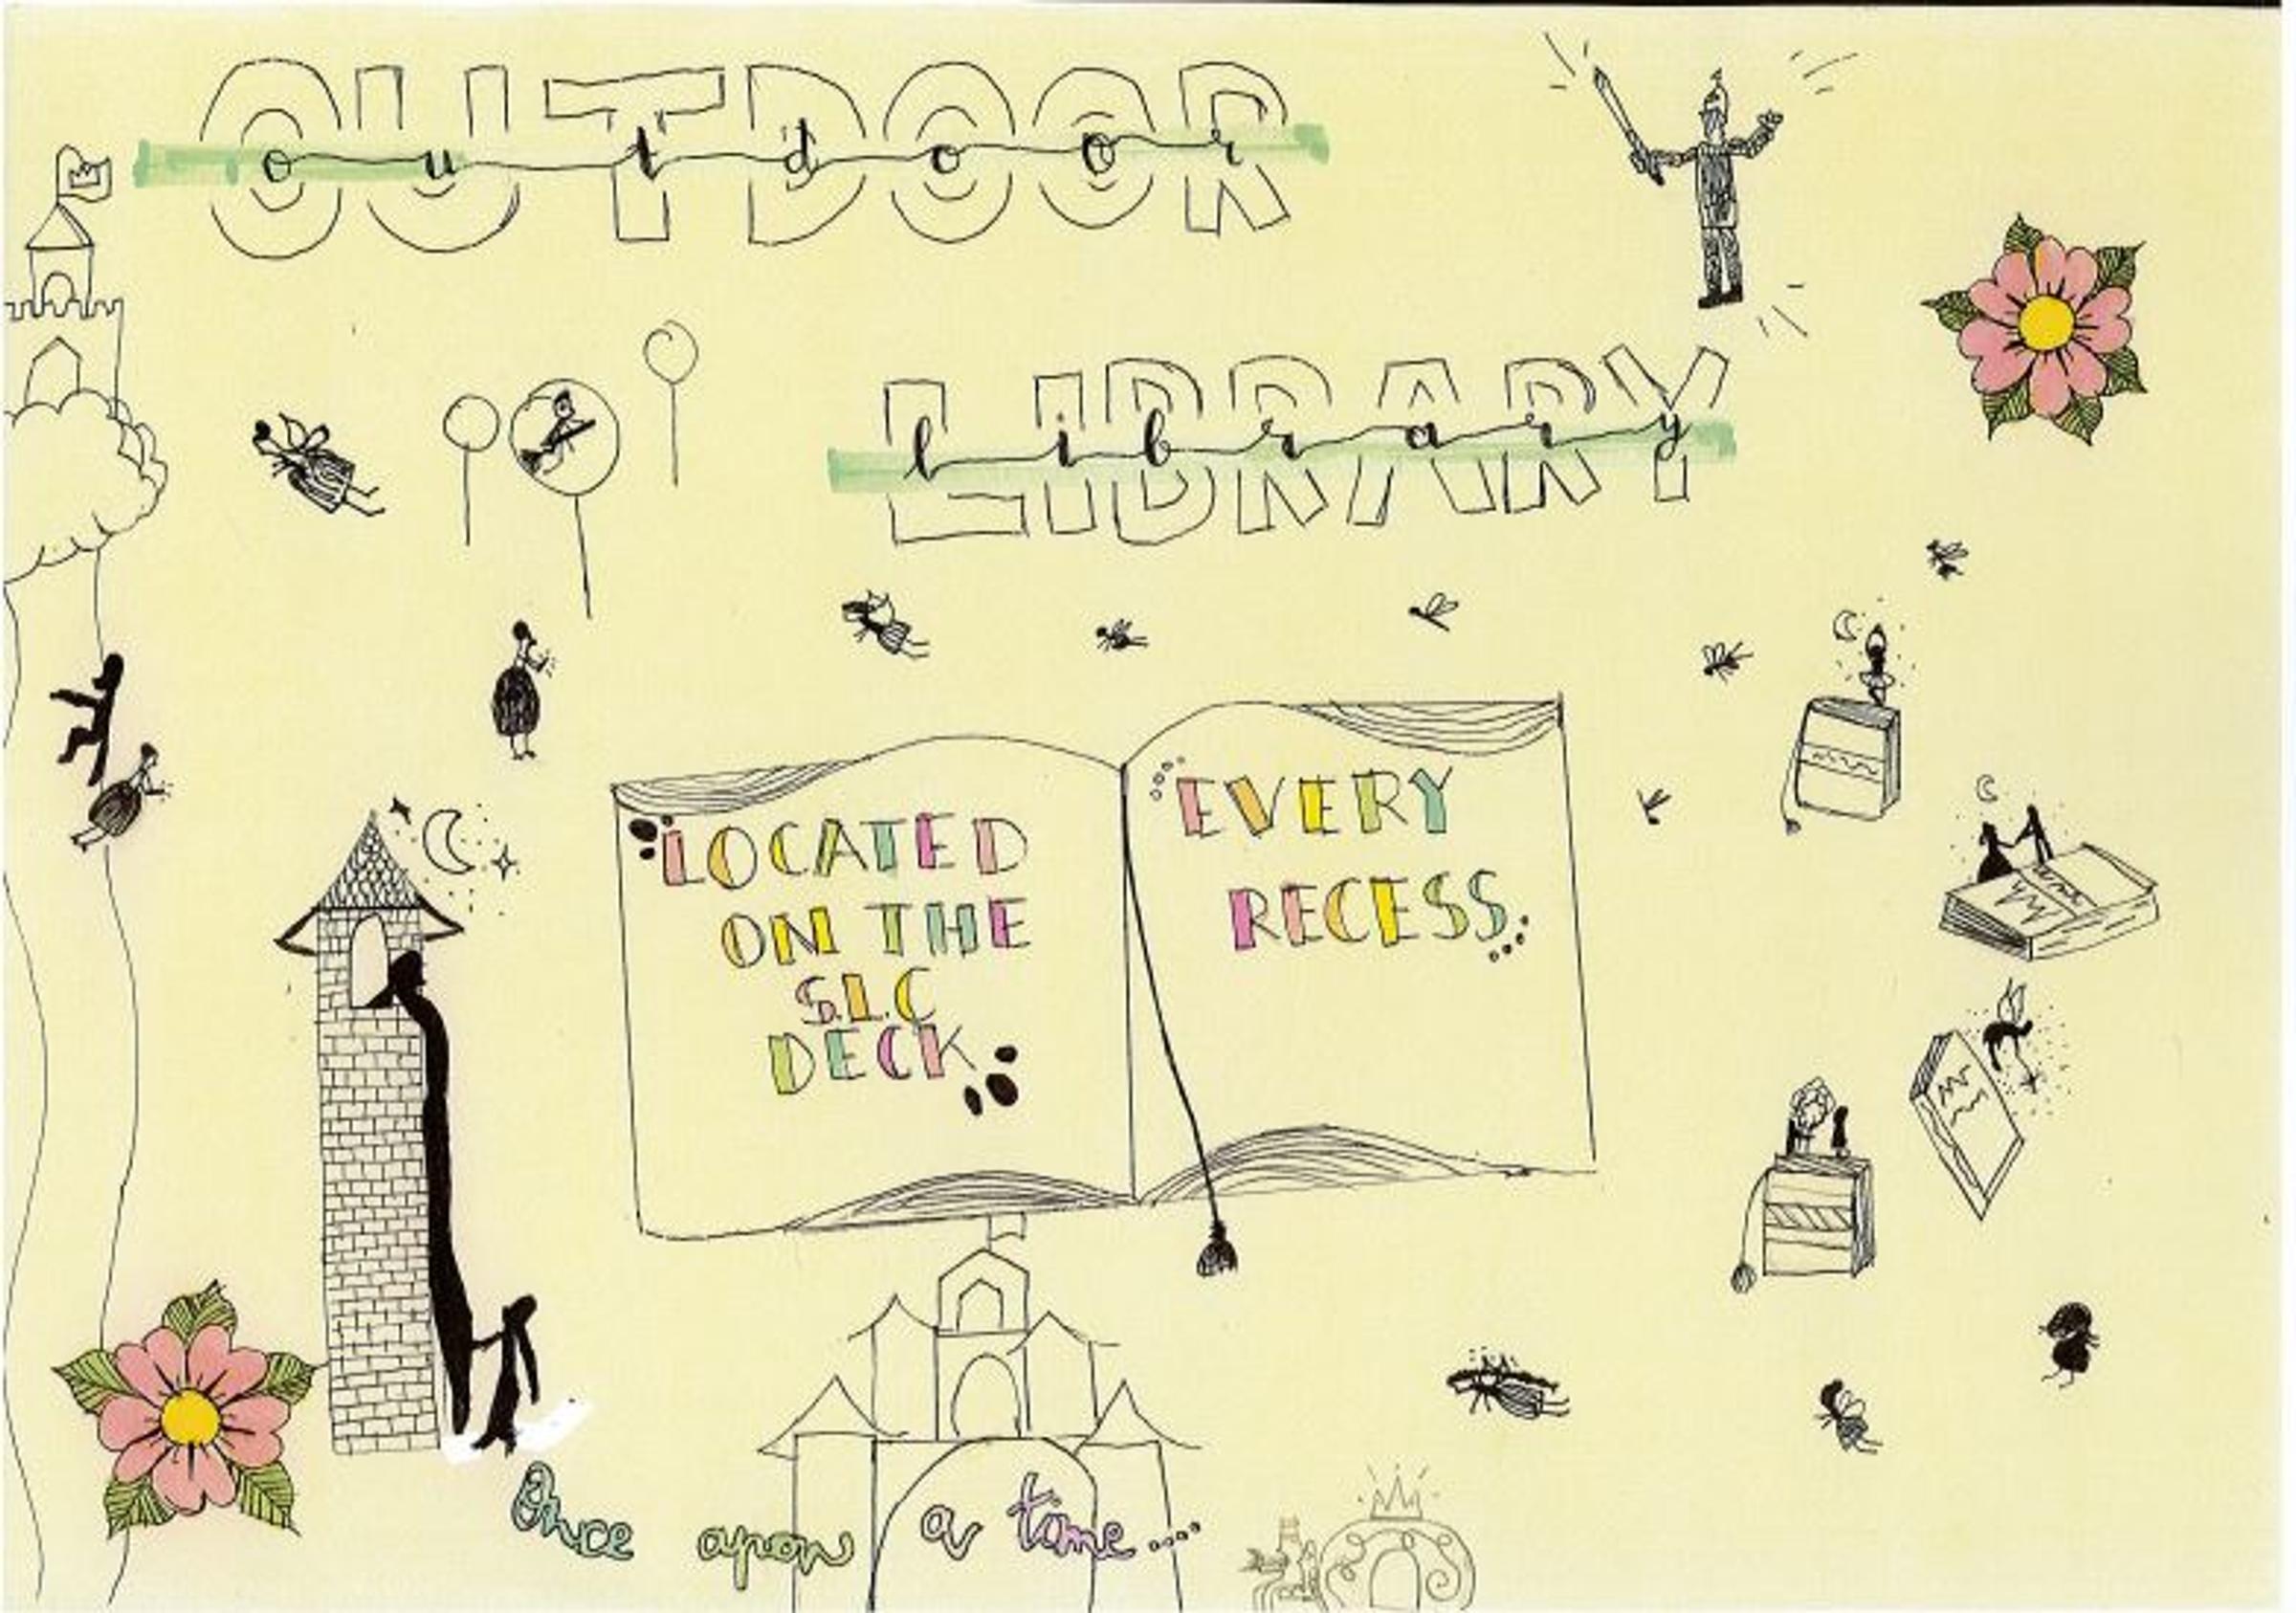 OUTDOOR
outdoor
LIBRARY
library
LOCATED
ON THE
S.L.C
DECK
EVERY
RECESS
Once apon a time....